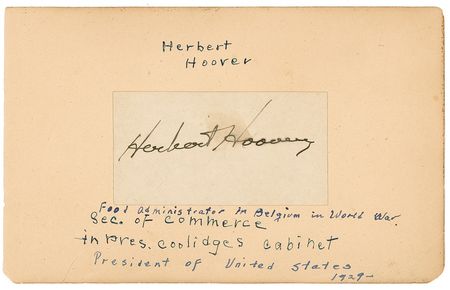 Herbert
Hoover
Herbert Hoover
Food administrator in Belgium in World War.
Sec. of Commerce
in pres. coolidges cabinet
President of United States
1929-